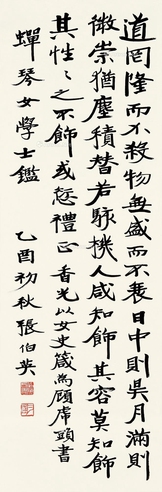 道罔隆而不殺物無盛而不衰日中則昃月滿則
微崇猶塵積替若駭機人咸知飾其容莫知飾
其性〻之不飾或愆禮正 香光以女史箴為顧虎頭書
蟬琴女學士鑑 乙酉初秋張伯英